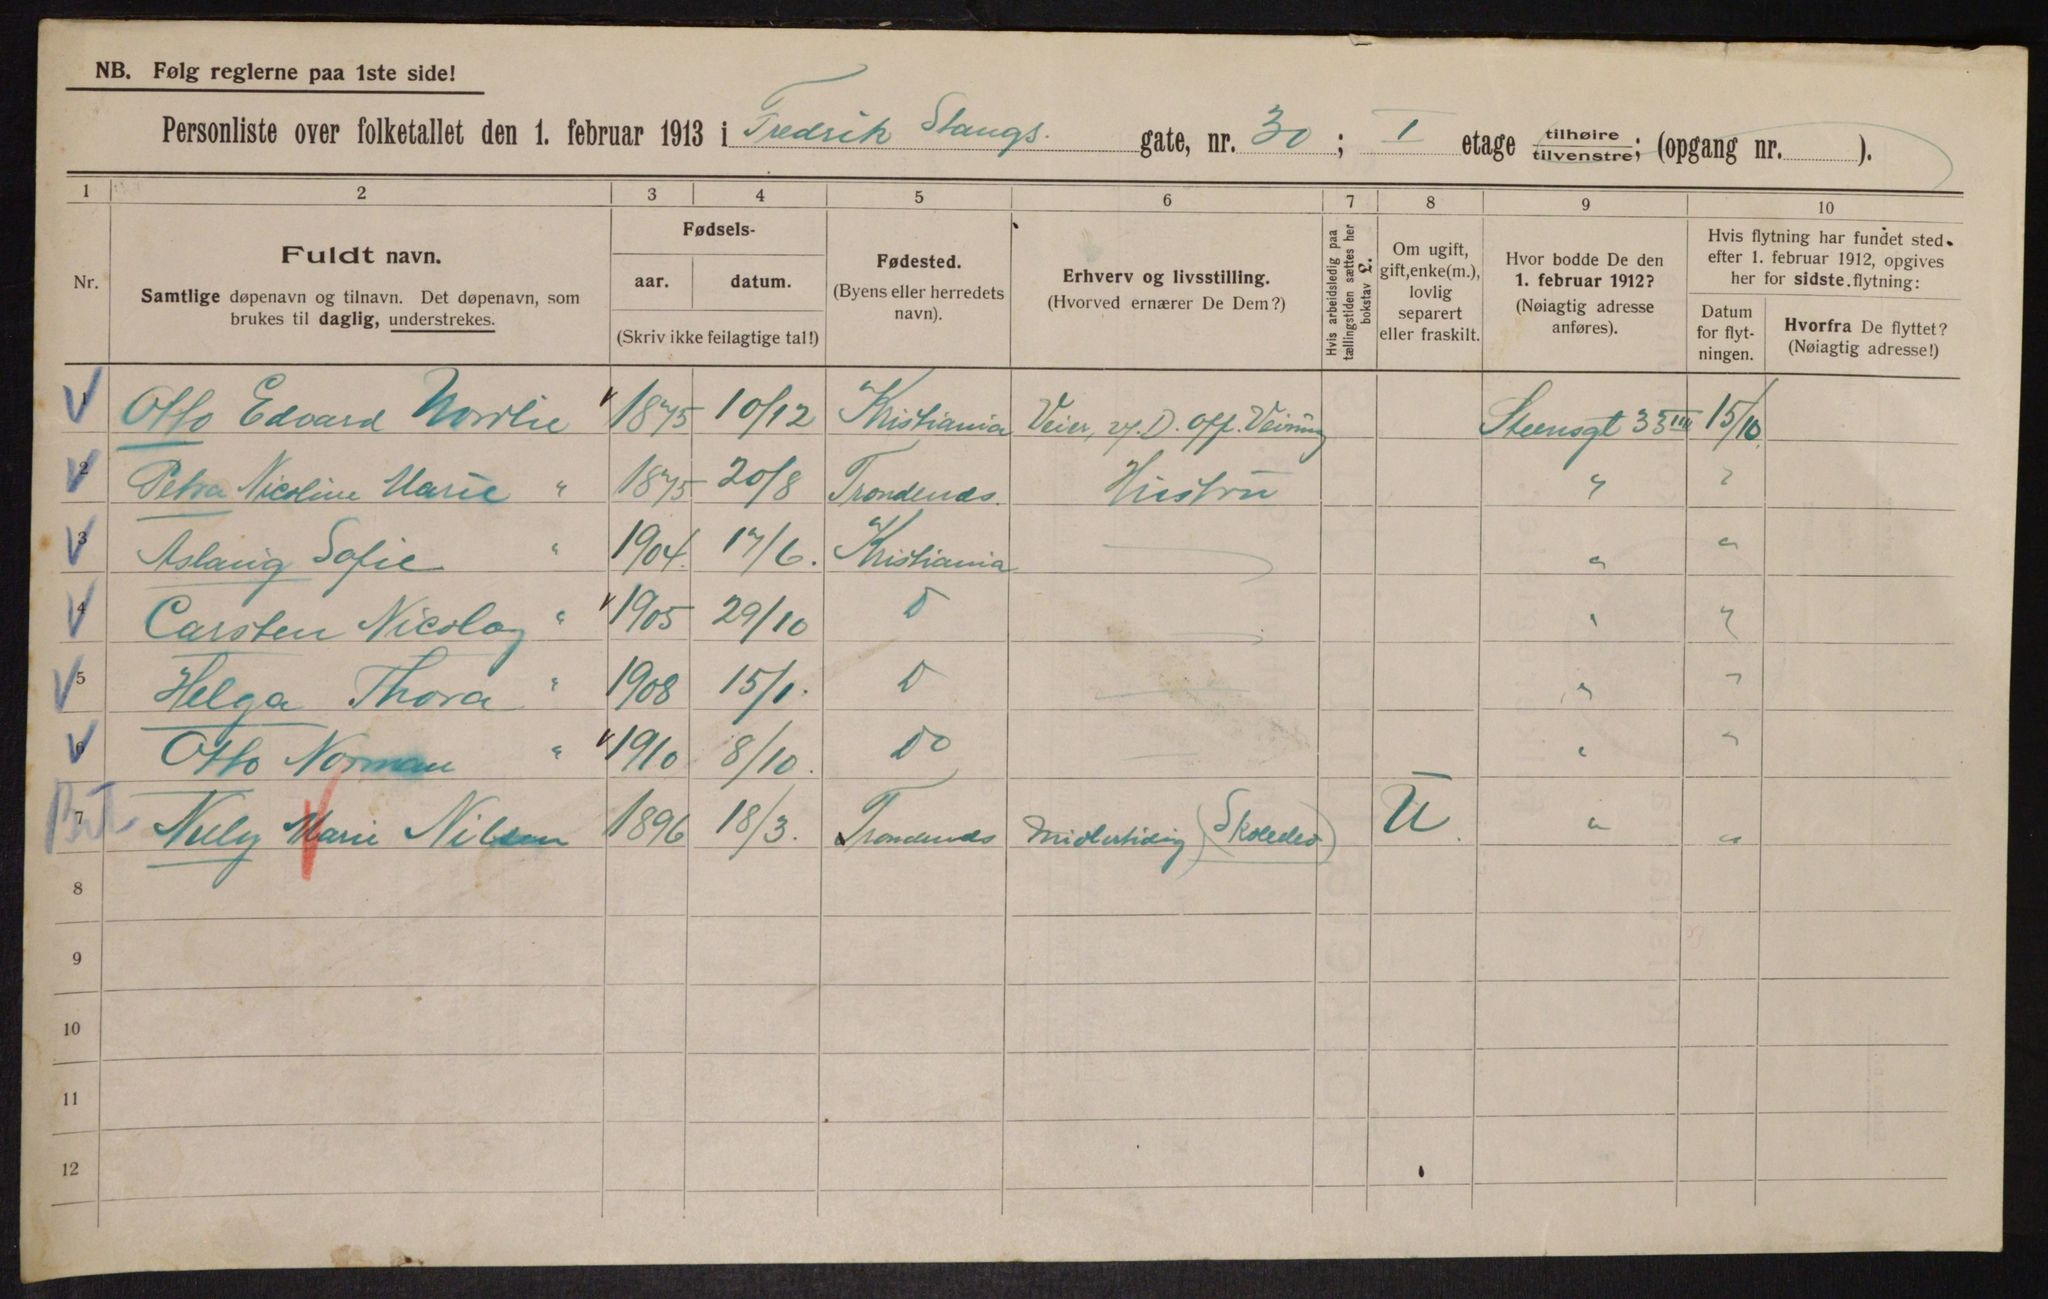 NB. Følg reglerne paa 1ste side!
Personliste over folketallet den 1. februar 1913 i Fredrik Stangs gate, nr. 30 ; I etage tilhøire tilvenstre; (opgang nr. ).
1 2 3 4 5 6 7 8 9 10
Nr.
Fuldt navn.
Samtlige døpenavn og tilnavn. Det døpenavn, som
brukes til daglig, understrekes.
Fødsels-
aar. datum.
(Skriv ikke feilagtige tal!)
Fødested.
(Byens eller herredets
navn).
Erhverv og livsstilling.
(Hvorved ernærer De Dem?)
Hvis arbeidsledig paa
tællingstiden sættes her
bokstav L.
Om ugift,
gift, enke(m.),
lovlig
separert
eller fraskilt.
Hvor bodde De den
1. februar 1912?
(Nøiagtig adresse
anføres).
Hvis flytning har fundet sted
efter 1. februar 1912, opgives
her for sidste flytning:
Datum
for flyt-
ningen.
Hvorfra De flyttet?
(Nøiagtig adresse!)
1 Otto Edvard Nordlie 1875 10/12 Kristiania Veier, v. D. off. Veining Steensgt 35 III 15/10
2 Petra Nicoline Marie " 1875 20/8 Trondenæs. Hustru " "
3 Aslaug Sofie " 1904. 17/6. Kristiania " "
4 Carsten Nicolay " 1905 29/10 D " "
5 Helga Thora " 1908 15/1. D " "
6 Otto Norman " 1910 8/10. Do " "
7 Nelly Marie Nilsen 1896 18/3. Trondenæs Midlertidig (Skoleelev) U. " "
8
9
10
11
12